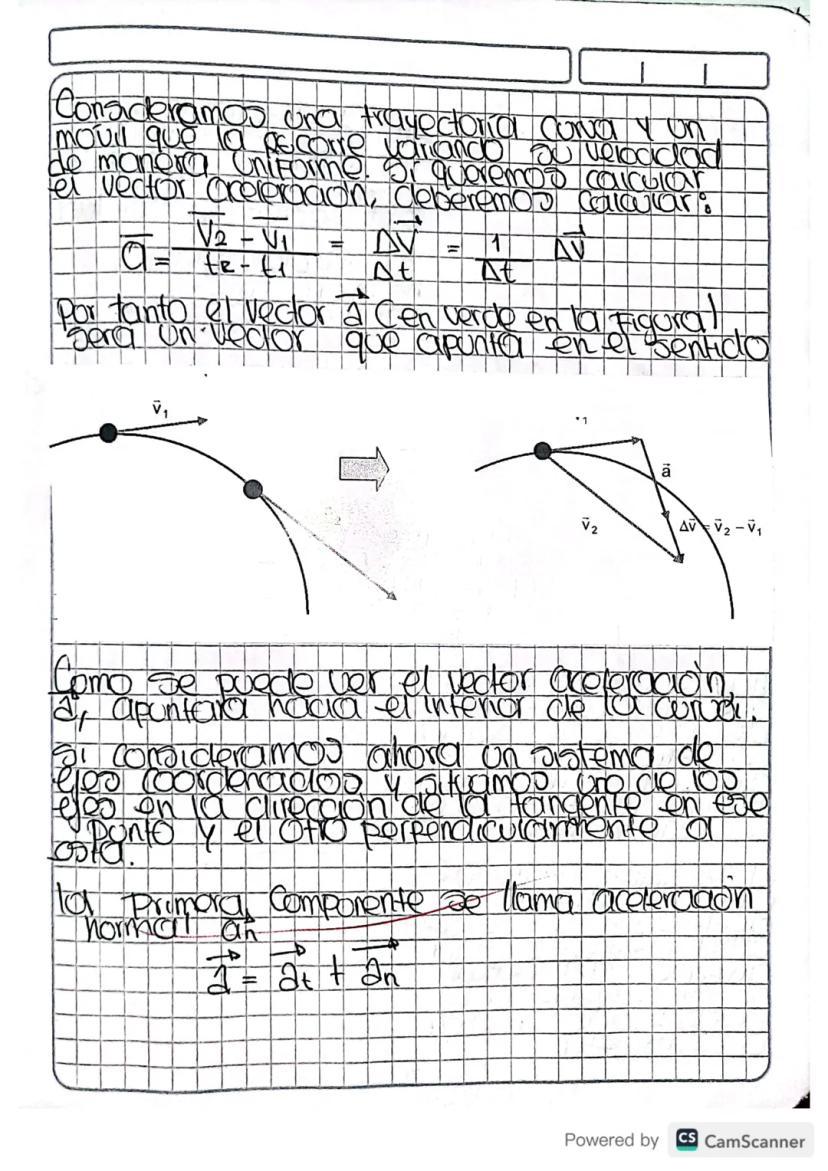 Consideramos una trayectoria curva y un
móvil que la recorre variando su velocidad
de manera uniforme. Si queremos calcular
el vector aceleración, deberemos calcular:
a = V2 - V1 / t2 - t1 = ΔV / Δt = 1 / Δt ΔV
Por tanto el vector a (en verde en la figura)
será un vector que apunta en el sentido
v1
v2
a
Δv = v2 − v1
Como se puede ver el vector aceleración,
a, apuntará hacia el interior de la curva.
Si consideramos ahora un sistema de
ejes coordenados y situamos uno de los
ejes en la dirección de la tangente en ese
punto y el otro perpendicularmente a
esta.
la primera componente se llama aceleración
normal an
a = at + an
Powered by CS CamScanner